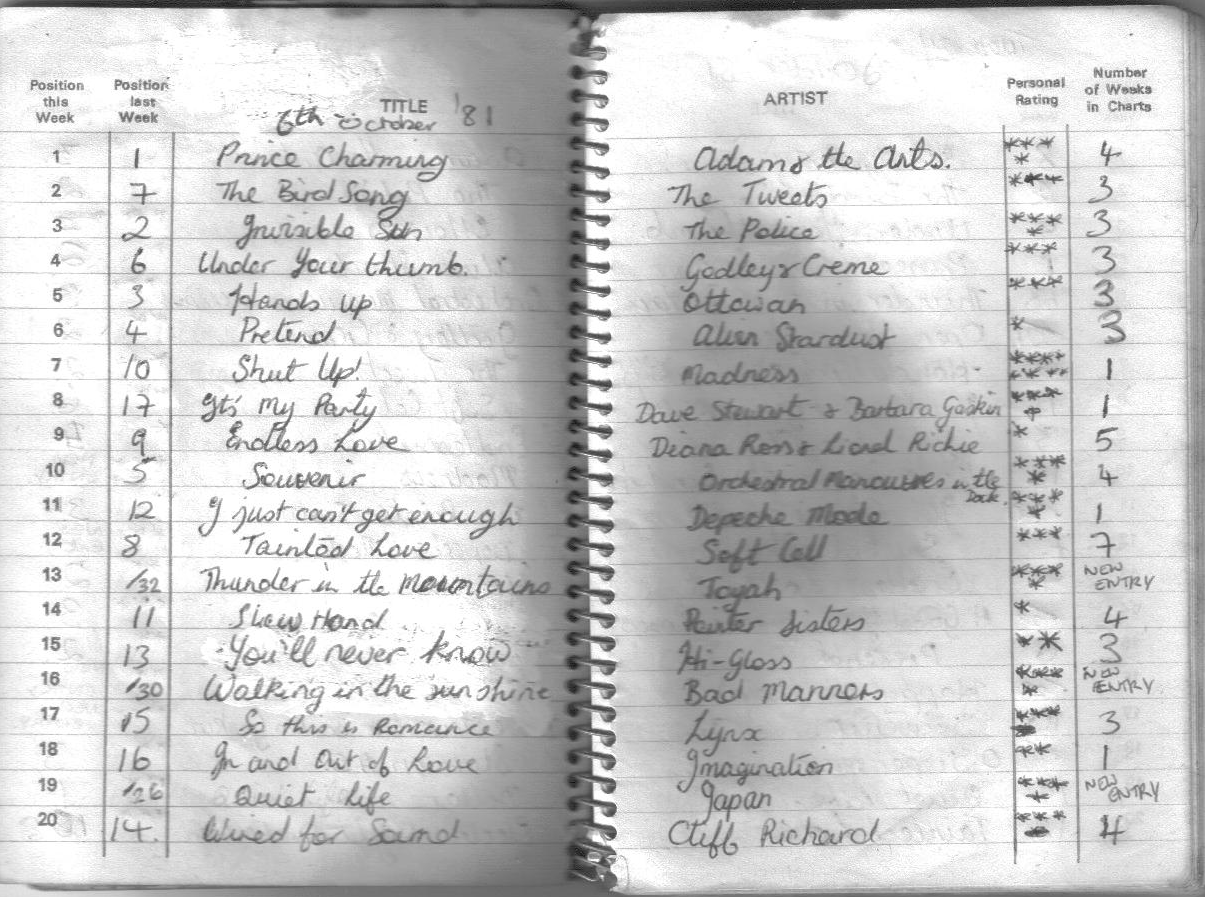 Position this Week Position last Week TITLE ARTIST Personal Rating Number of Weeks in Charts
6th October '81
1 1 Prince Charming Adam & the Ants. **** 4
2 7 The Bird Song The Tweets *** 3
3 2 Invisible Sun The Police **** 3
4 6 Under Your thumb. Godley & Creme *** 3
5 3 Hands up Ottowan *** 3
6 4 Pretend Alvin Stardust * 3
7 10 Shut Up! Madness 1
8 17 It's My Party Dave Stewart & Barbara Gaskin **** 1
9 9 Endless Love Diana Ross & Lionel Richie * 5
10 5 Souvenir Orchestral Manouvres in the Dark. **** 4
11 12 I just can't get enough Depeche Mode **** 1
12 8 Tainted Love Soft Cell *** 7
13 /32 Thunder in the Mountains Toyah **** NEW ENTRY
14 11 Slow Hand Pointer Sisters * 4
15 13 You'll never know Hi-Gloss ** 3
16 /30 Walking in the sunshine Bad Manners **** NEW ENTRY
17 15 So this is Romance Lynx *** 3
18 16 In and Out of Love Imagination ** 1
19 /26 Quiet Life Japan **** NEW ENTRY
20 14. Wired for Sound Cliff Richard *** 4